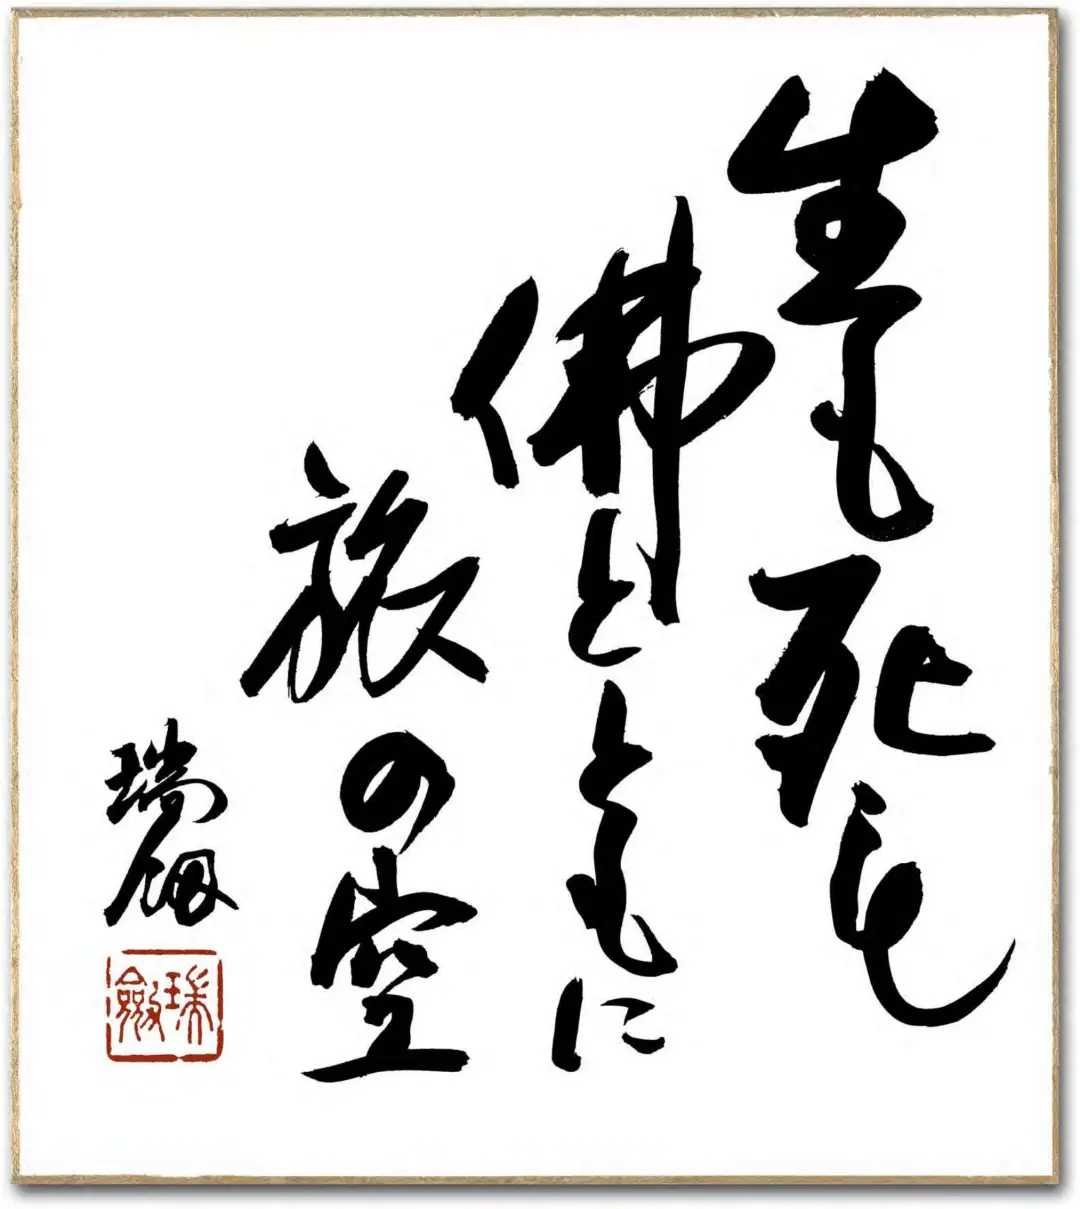 生も死も
佛とともに
旅の空
瑞劔
瑞劔